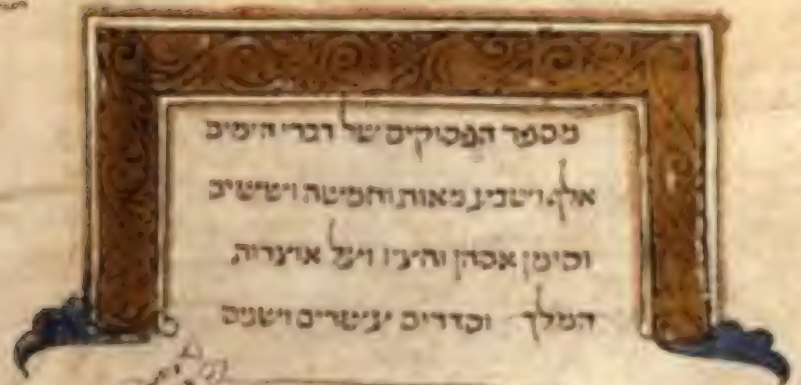 מספר הפסוקים של דברי הימים
אלף ושבע מאות וחמשה וששים
וסימן וחציו ועל אוצרות
המלך וסדרים עשרים ושנים